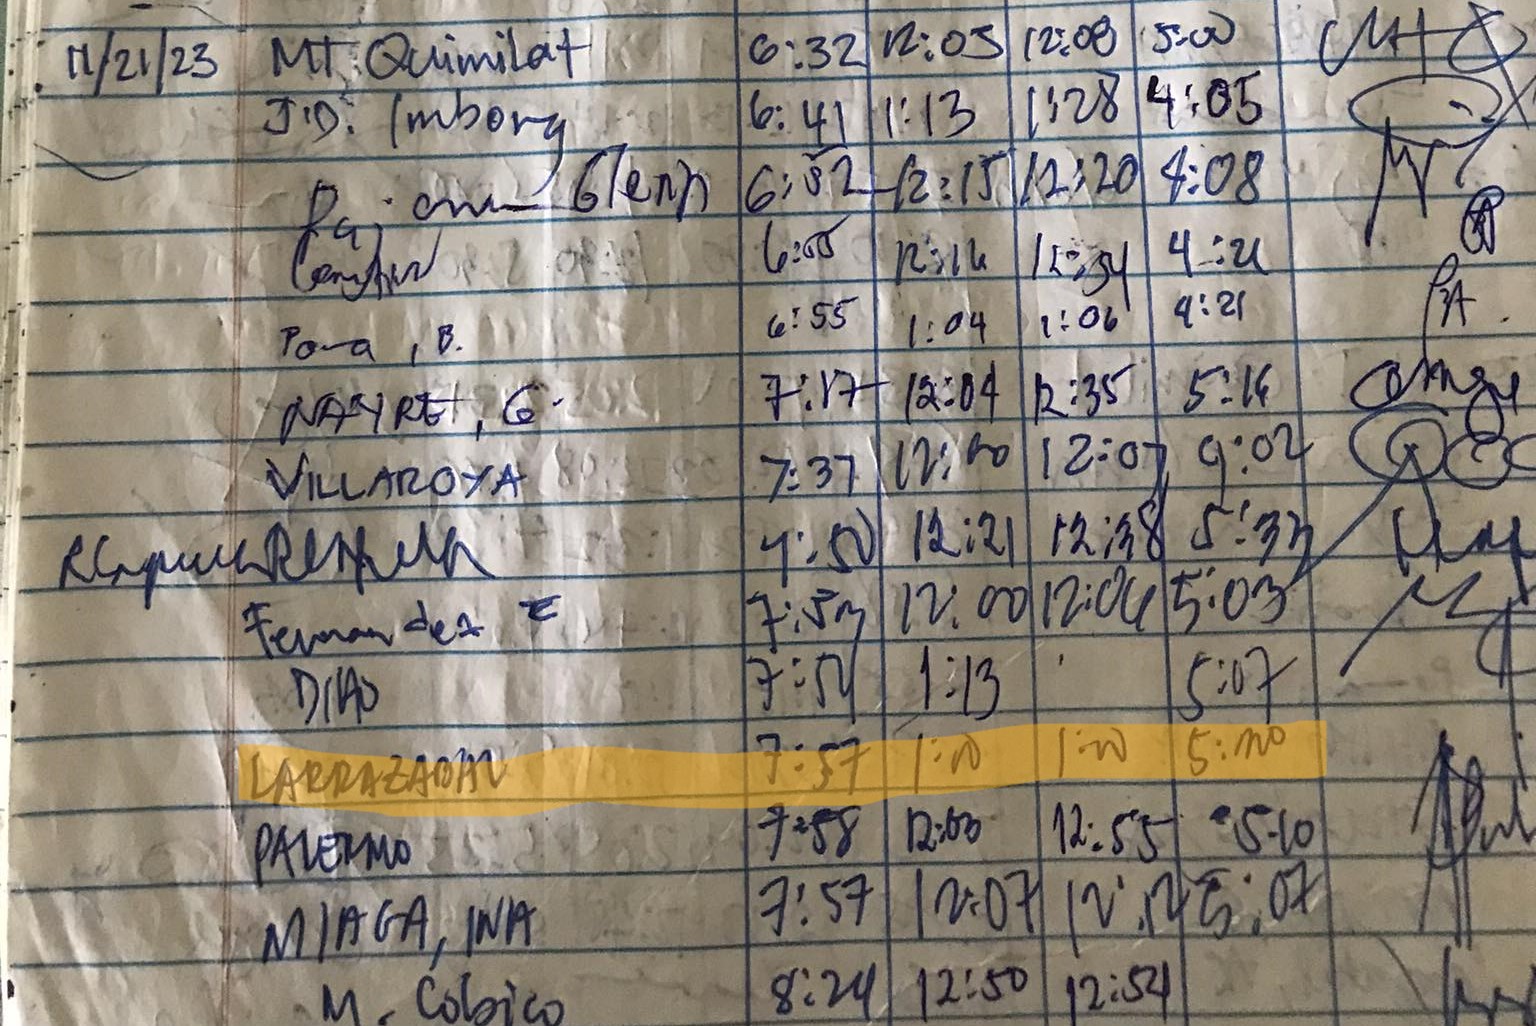 11/21/23 MT Quimilat 6:32 12:05 12:08 5:00
J.D. Imborg 6:41 1:13 1:28 4:05
Glenn 6:52 12:15 12:20 4:08
6:55 12:16 12:34 4:21
Pona, B. 6:55 1:04 1:06 4:21
NAYRE, G. 7:17 12:04 12:35 5:16
VILLAROYA 7:37 12:00 12:07 9:02
12:21 12:38 5:33
Fernandez E 7:53 12:00 12:04 5:03
DIAO 7:54 1:13 5:07
LARRAZABAL 7:57 1:00 1:00 5:20
PALERMO 7:58 12:00 12:55 5:10
MIAGA, INA 7:57 12:07 12:12 5:07
M. Cobico 8:24 12:50 12:54